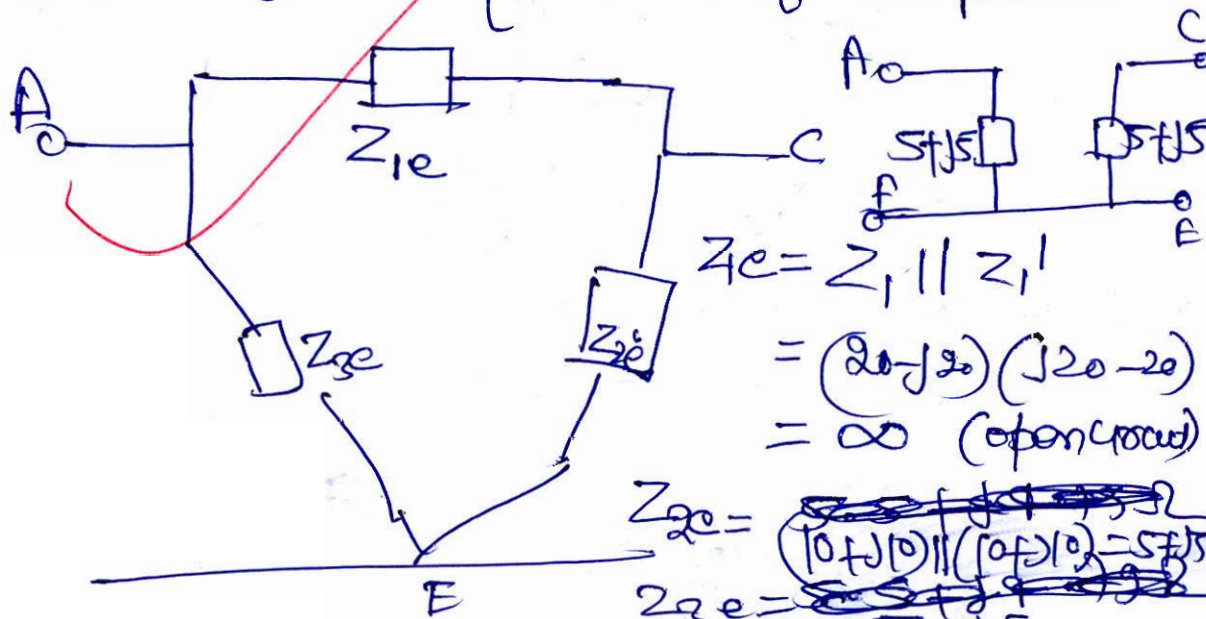 A
Z1e
C
Z3e
Z2e
E
A
C
5+j5
5+j5
E
Z1e = Z1 || Z1'
= (20-j20) (j20-20)
= ∞ (open circuit)
Z2e =
(10+j10)||(10+j10) = 5+j5